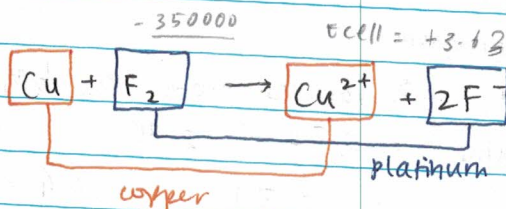 - 350000
Ecell = +3.63
Cu + F₂ → Cu²⁺ + 2F⁻
platinum
copper